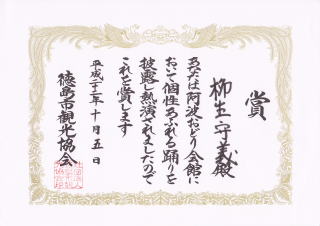 賞
柳生守義殿
あなたは阿波おどり会館に
おいて個性あふれる踊りを
披露し熱演されましたので
これを賞します
平成二十二年十月五日
徳島市観光協会